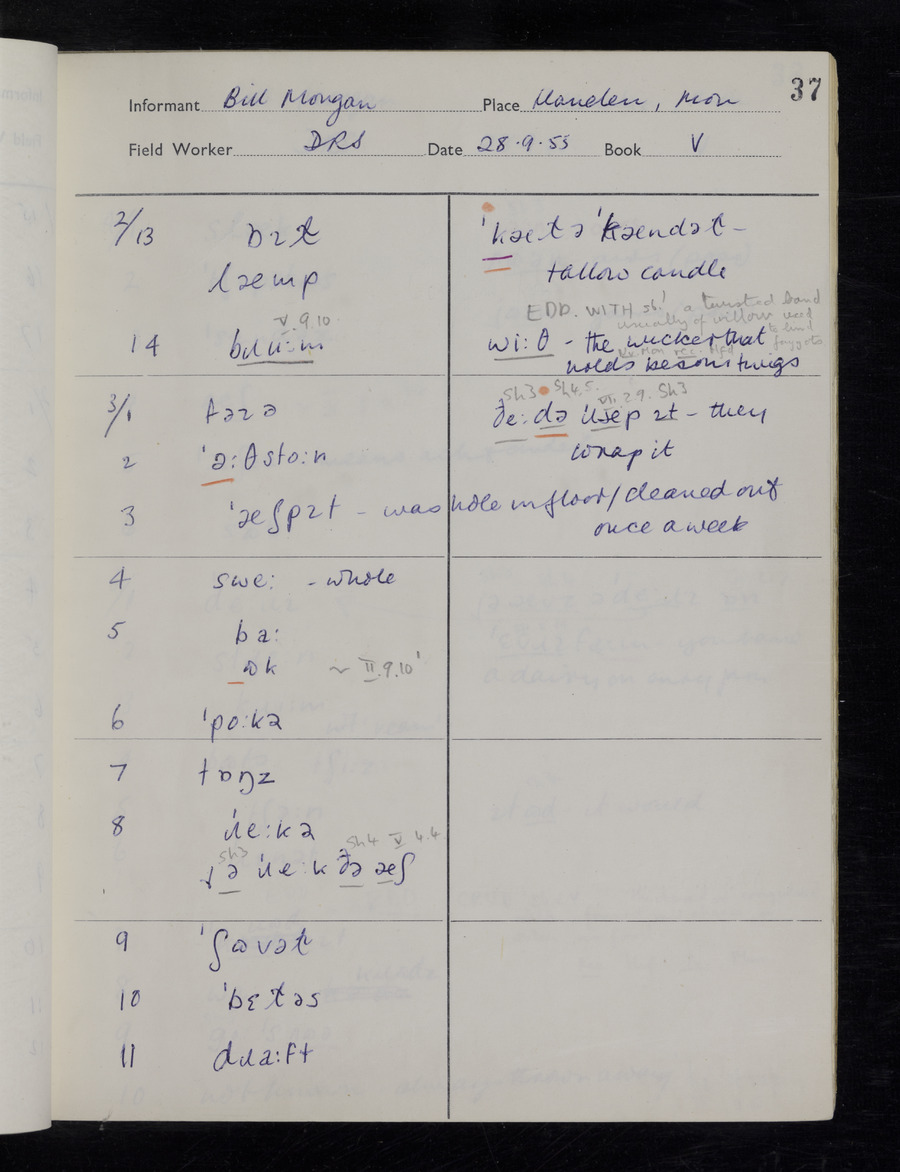 37
Informant Bill Morgan Place Llanellen, Mon
Field Worker DRS Date 28.9.55 Book V
2/13 ɒɪɫ 'kəeɫə 'kaendəɫ –
læmp tallow candle
V.9.10 EDD. WITH sb.1 a twisted band
usually of willow used
14 bɹuːm wiːθ – the wicker that to bind
faggots
holds besom twigs
Sh3 Sh4.5. VI.29. Sh3
3/1 fəɪə ðeːdə ɹæp ɪt – they
2 'əːθstoːn wrap it
3 'æʃpɪt – was hole in floor / cleaned out
once a week
4 sweː – whole
5 baː
ɒk ~ II.9.10'
6 'poːkə
7 tɒŋz
8 'ɹeːkə
Sh3 Sh4 V 4.4
ə 'ɹeːk ðə æʃ
9 'ʃɒvəɫ
10 'bɛɫəs
11 dɹaːft